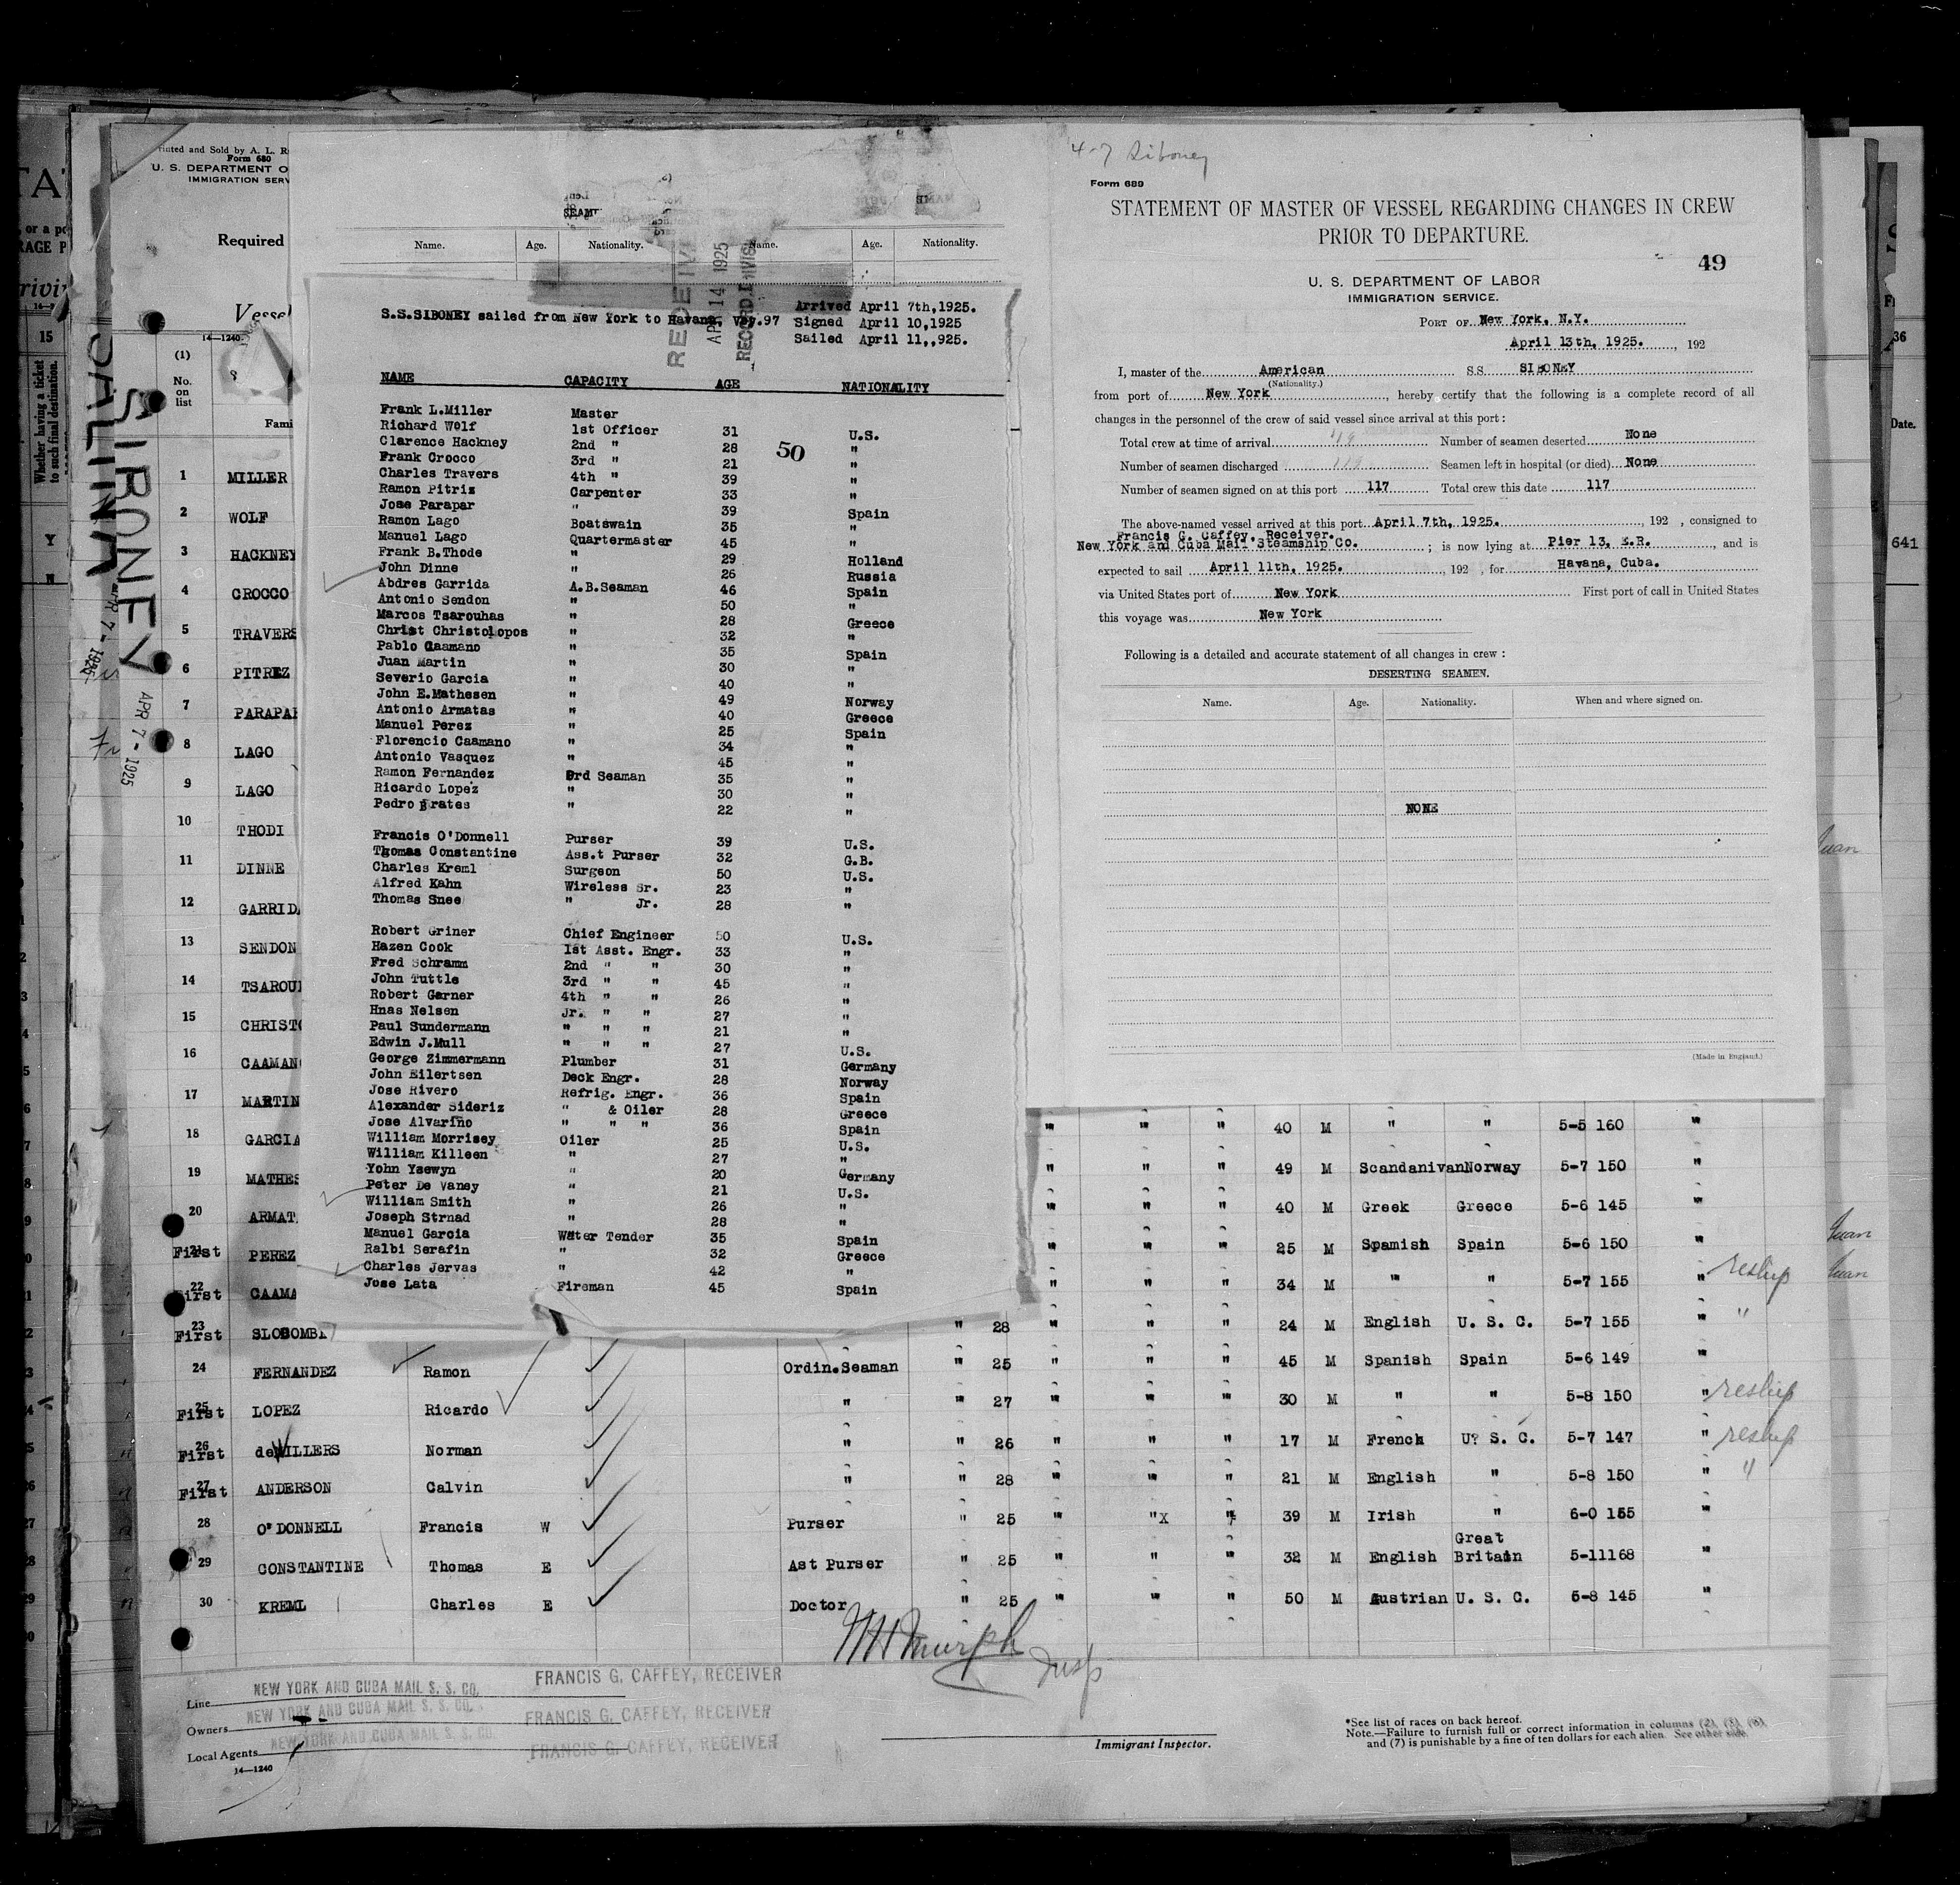 Printed and Sold by A. L. R
Form 680
U. S. DEPARTMENT O
IMMIGRATION SERV
Required
Vessel
14—1240
(1)
No.
on
list
Fami
SALINA
SIBONEY
APR 7 - 1925
APR 7 - 1925
15
Whether having a ticket
to such final destination.
1 MILLER
2 WOLF
3 HACKNEY
4 CROCCO
5 TRAVERS
6 PITREZ
7 PARAPAR
8 LAGO
9 LAGO
10 THODI
11 DINNE
12 GARRIDA
13 SENDON
14 TSAROU
15 CHRISTO
16 CAAMANO
17 MARTIN
18 GARCIA
19 MATHES
20 ARMAT
21 First PEREZ
22 First CAAMA
SEAM
Name. Age. Nationality. Name. Age. Nationality.
RECEIVE
APR 14 1925
RECORD DIVIS
S.S.SIBONEY sailed from New York to Havana, Voy.97
Arrived April 7th,1925.
Signed April 10,1925
Sailed April 11,,925.
NAME CAPACITY AGE NATIONALITY
50
Frank L.Miller Master
Richard Wolf 1st Officer 31 U.S.
Clarence Hackney 2nd " 28 "
Frank Crocco 3rd " 21 "
Charles Travers 4th " 39 "
Ramon Pitriz Carpenter 33 "
Jose Parapar " 39 Spain
Ramon Lago Boatswain 35 "
Manuel Lago Quartermaster 45
Frank B.Thode " 29 Holland
John Dinne " 26 Russia
Abdres Garrida A.B.Seaman 46 Spain
Antonio Sendon " 50 "
Marcos Tsarouhas " 28 Greece
Christ Christolopos " 32 "
Pablo Caamano " 35 Spain
Juan Martin " 30 "
Severio Garcia " 40 "
John E.Mathesen " 49 Norway
Antonio Armatas " 40 Greece
Manuel Perez " 25 Spain
Florencio Caamano " 34 "
Antonio Vasquez " 45 "
Ramon Fernandez Ord Seaman 35 "
Ricardo Lopez " 30 "
Pedro Prates " 22 "
Francis O'Donnell Purser 39 U.S.
Thomas Constantine Ass.t Purser 32 G.B.
Charles Kreml Surgeon 50 U.S.
Alfred Kahn Wireless Sr. 23 "
Thomas Snee " Jr. 28 "
Robert Griner Chief Engineer 50 U.S.
Hazen Cook 1st Asst. Engr. 33 "
Fred Schramm 2nd " " 30 "
John Tuttle 3rd " " 45 "
Robert Garner 4th " " 26 "
Hnas Nelsen Jr. " " 27 "
Paul Sundermann " " " 21 "
Edwin J.Mull " " " 27 U.S.
George Zimmermann Plumber 31 Germany
John Eilertsen Deck Engr. 28 Norway
Jose Rivero Refrig. Engr. 36 Spain
Alexander Sideriz " & Oiler 28 Greece
Jose Alvarino " " " 36 Spain
William Morrisey Oiler 25 U.S.
William Killeen " 27 "
Yohn Ysewyn " 20 Germany
Peter De Vaney " 21 U.S.
William Smith " 26 "
Joseph Strnad " 28 "
Manuel Garcia Water Tender 35 Spain
Ralbi Serafin " 32 Greece
Charles Jervas " 42 "
Jose Lata Fireman 45 Spain
4-7 Siboney
Form 689
STATEMENT OF MASTER OF VESSEL REGARDING CHANGES IN CREW
PRIOR TO DEPARTURE.
49
U. S. DEPARTMENT OF LABOR
IMMIGRATION SERVICE.
PORT OF New York, N.Y.
April 13th, 1925. , 192
I, master of the American S.S. SIBONEY
(Nationality.)
from port of New York, hereby certify that the following is a complete record of all
changes in the personnel of the crew of said vessel since arrival at this port :
Total crew at time of arrival Number of seamen deserted None
Number of seamen discharged Seamen left in hospital (or died) None
Number of seamen signed on at this port 117 Total crew this date 117
The above-named vessel arrived at this port April 7th, 1925. , 192 , consigned to
Francis G. Caffey, Receiver.
New York and Cuba Mail Steamship Co. ; is now lying at Pier 13, E.R. , and is
expected to sail April 11th, 1925. , 192 , for Havana, Cuba.
via United States port of New York First port of call in United States
this voyage was New York
Following is a detailed and accurate statement of all changes in crew :
DESERTING SEAMEN.
Name. Age. Nationality. When and where signed on.
NONE
(Made in England.)
" " " 40 M " " 5-5 160 "
" " " 49 M Scandanivan Norway 5-7 150 "
" " " 40 M Greek Greece 5-6 145 "
" " " 25 M Spamish Spain 5-6 150 "
" " " 34 M " " 5-7 155 " reship
23 First SLOCOMB " 28 " " " 24 M English U. S. C. 5-7 155 " "
24 FERNANDEZ Ramon Ordin.Seaman " 25 " " " 45 M Spanish Spain 5-6 149 "
25 First LOPEZ Ricardo " " 27 " " " 30 M " " 5-8 150 " reship
26 First deWILLERS Norman " " 26 " " " 17 M French U? S. C. 5-7 147 " reship
27 First ANDERSON Calvin " " 28 " " " 21 M English " 5-8 150 " "
28 O'DONNELL Francis W Purser " 25 " "X " 39 M Irish " 6-0 155 "
29 CONSTANTINE Thomas E Ast Purser " 25 " " " 32 M English Great Britain 5-11168 "
30 KREML Charles E Doctor " 25 " " " 50 M Austrian U. S. C. 5-8 145 "
Insp
Line NEW YORK AND CUBA MAIL S. S. CO. FRANCIS G. CAFFEY, RECEIVER
Owners NEW YORK AND CUBA MAIL S. S. CO. FRANCIS G. CAFFEY, RECEIVER
Local Agents NEW YORK AND CUBA MAIL S. S. CO. FRANCIS G. CAFFEY, RECEIVER
14—1240
Immigrant Inspector.
*See list of races on back hereof.
Note.—Failure to furnish full or correct information in columns (2), (5), (6),
and (7) is punishable by a fine of ten dollars for each alien. See other side.
36
Date.
641